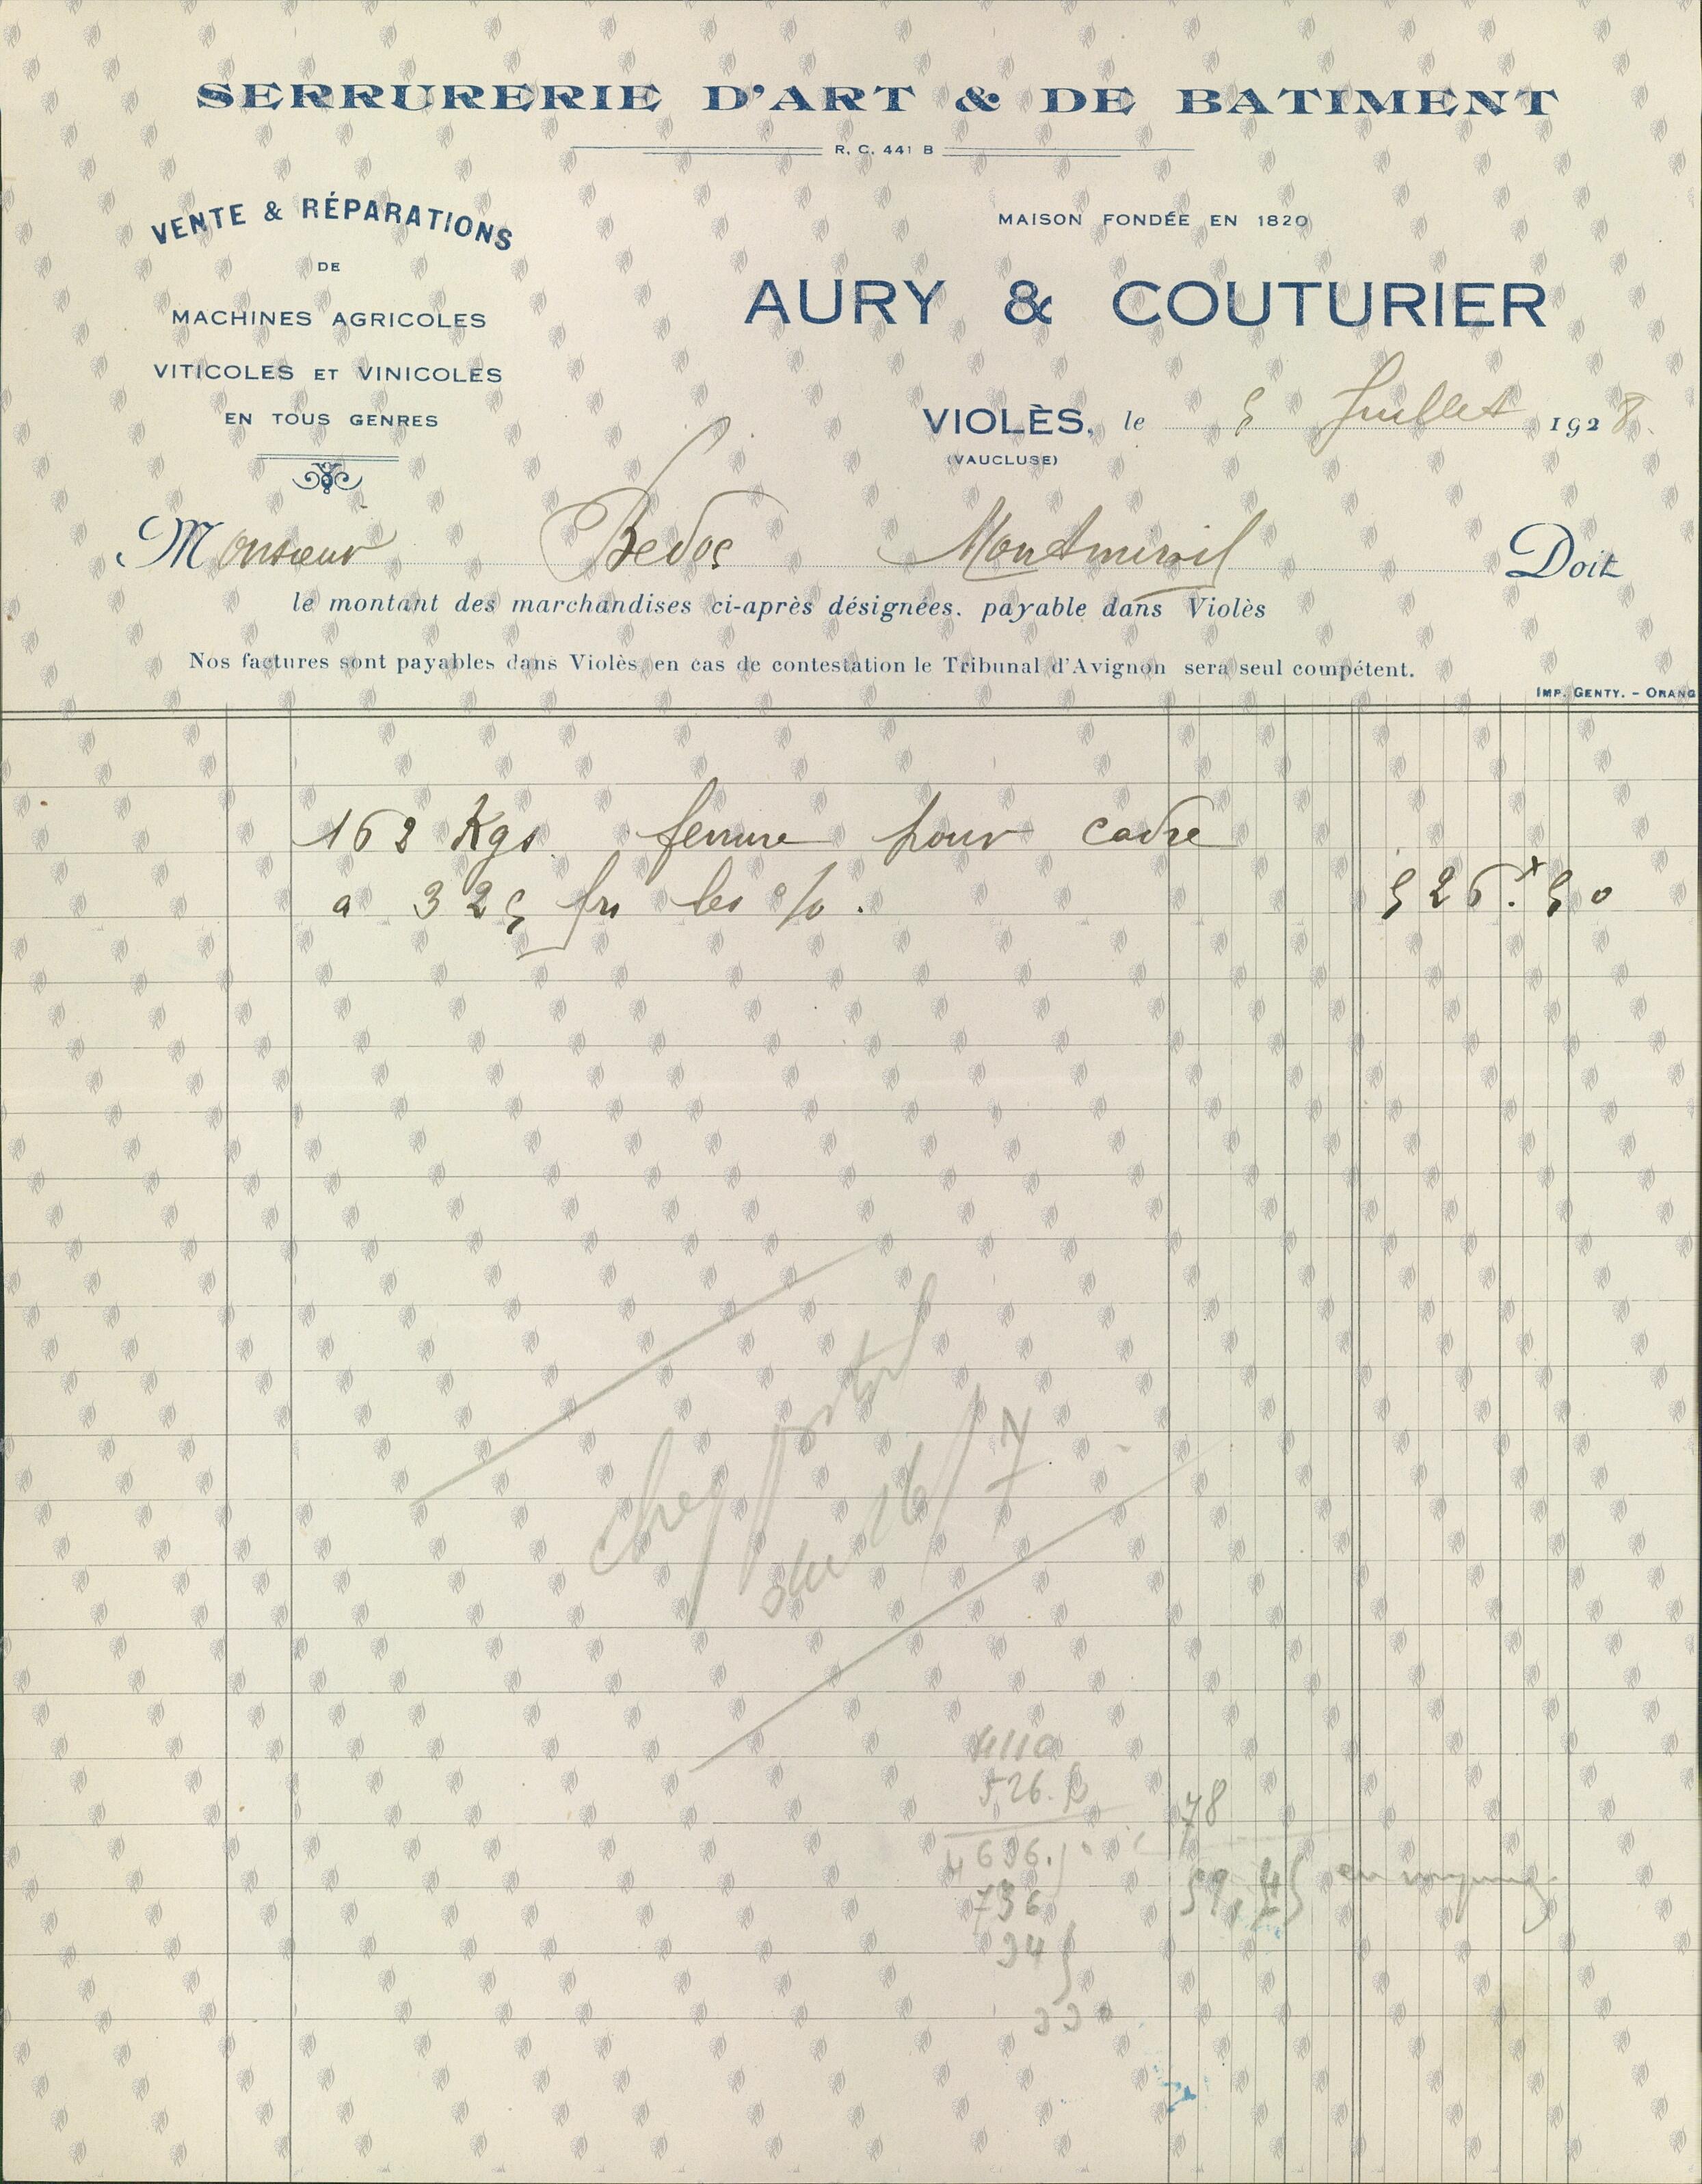 SERRURERIE D'ART & DE BATIMENT
R. C. 441 B
VENTE & RÉPARATIONS
DE
MACHINES AGRICOLES
VITICOLES ET VINICOLES
EN TOUS GENRES
MAISON FONDÉE EN 1820
AURY & COUTURIER
VIOLÈS, le 5 Juillet 1928.
(VAUCLUSE)
Monsieur Bedos Montmirail Doit
le montant des marchandises ci-après désignées. payable dans Violès
Nos factures sont payables dans Violès, en cas de contestation le Tribunal d'Avignon sera seul compétent.
IMP. GENTY. - ORANG
162 Kgs ferrure pour cadre
a 325 frs les %. 526.50
cheq postal
du 16/7
4110
526.50
78
4636.
59,45 en moyenne
736
94
330